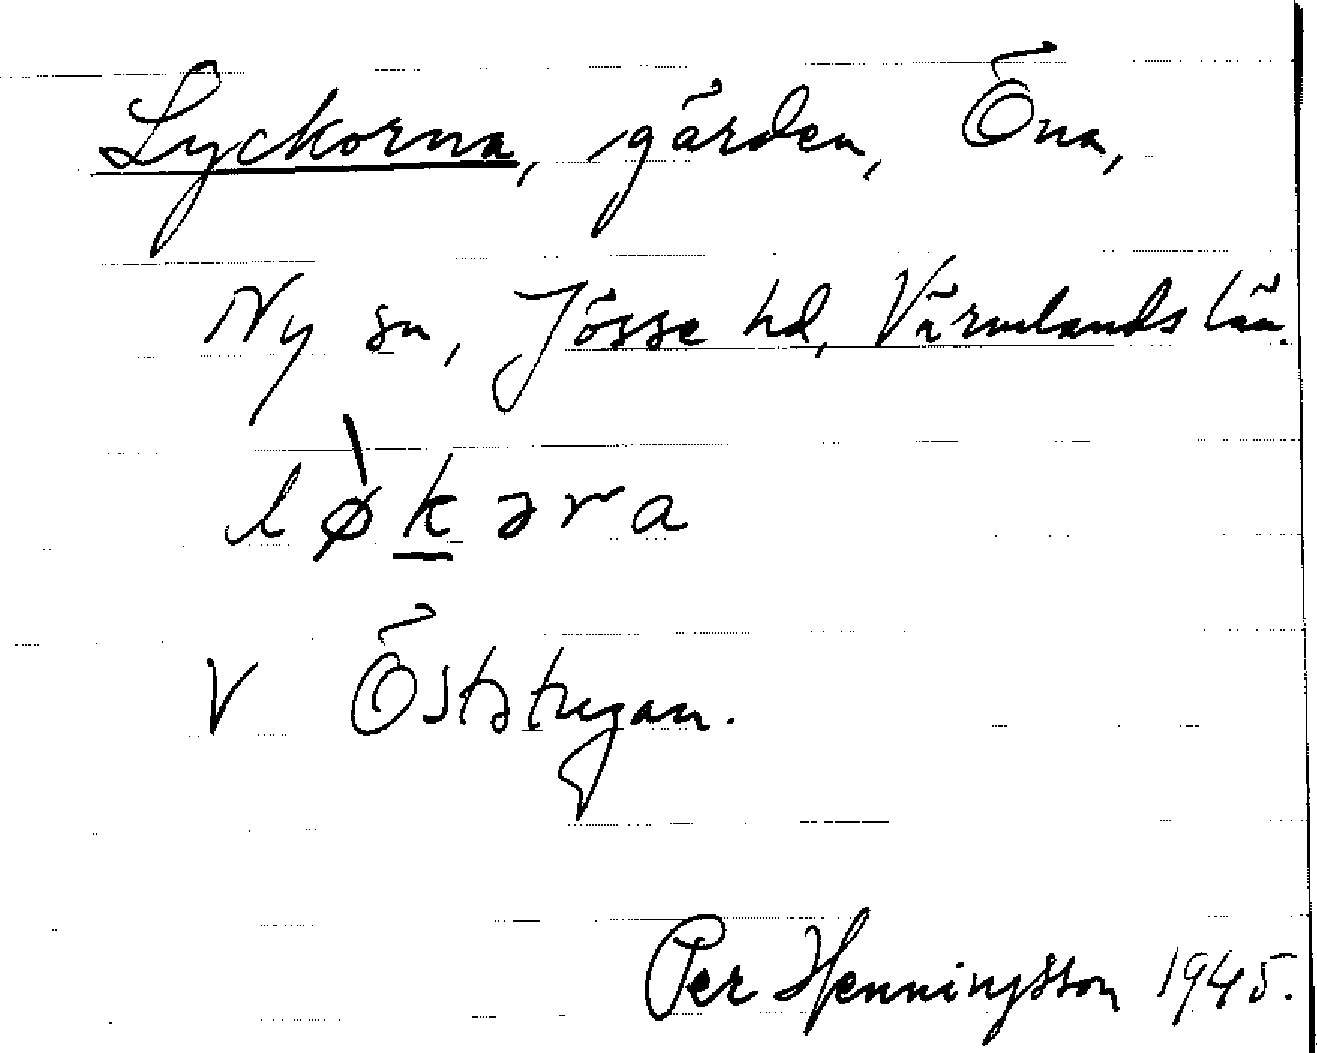 Lyckorna, gården, Öna,
Ny sn, Jösse hd, Värmlands län.
lø̀kəra
V Östtegan.
Per Henningsson 1945.